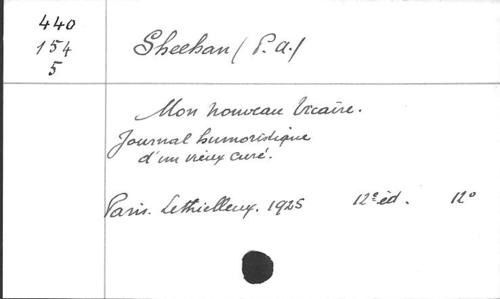 440
154
5
Sheehan (P. A.)
Mon nouveau Vicaire.
Journal humoristique
d'un vieux curé.
Paris. Lethielleux. 1925 12e éd. 12°